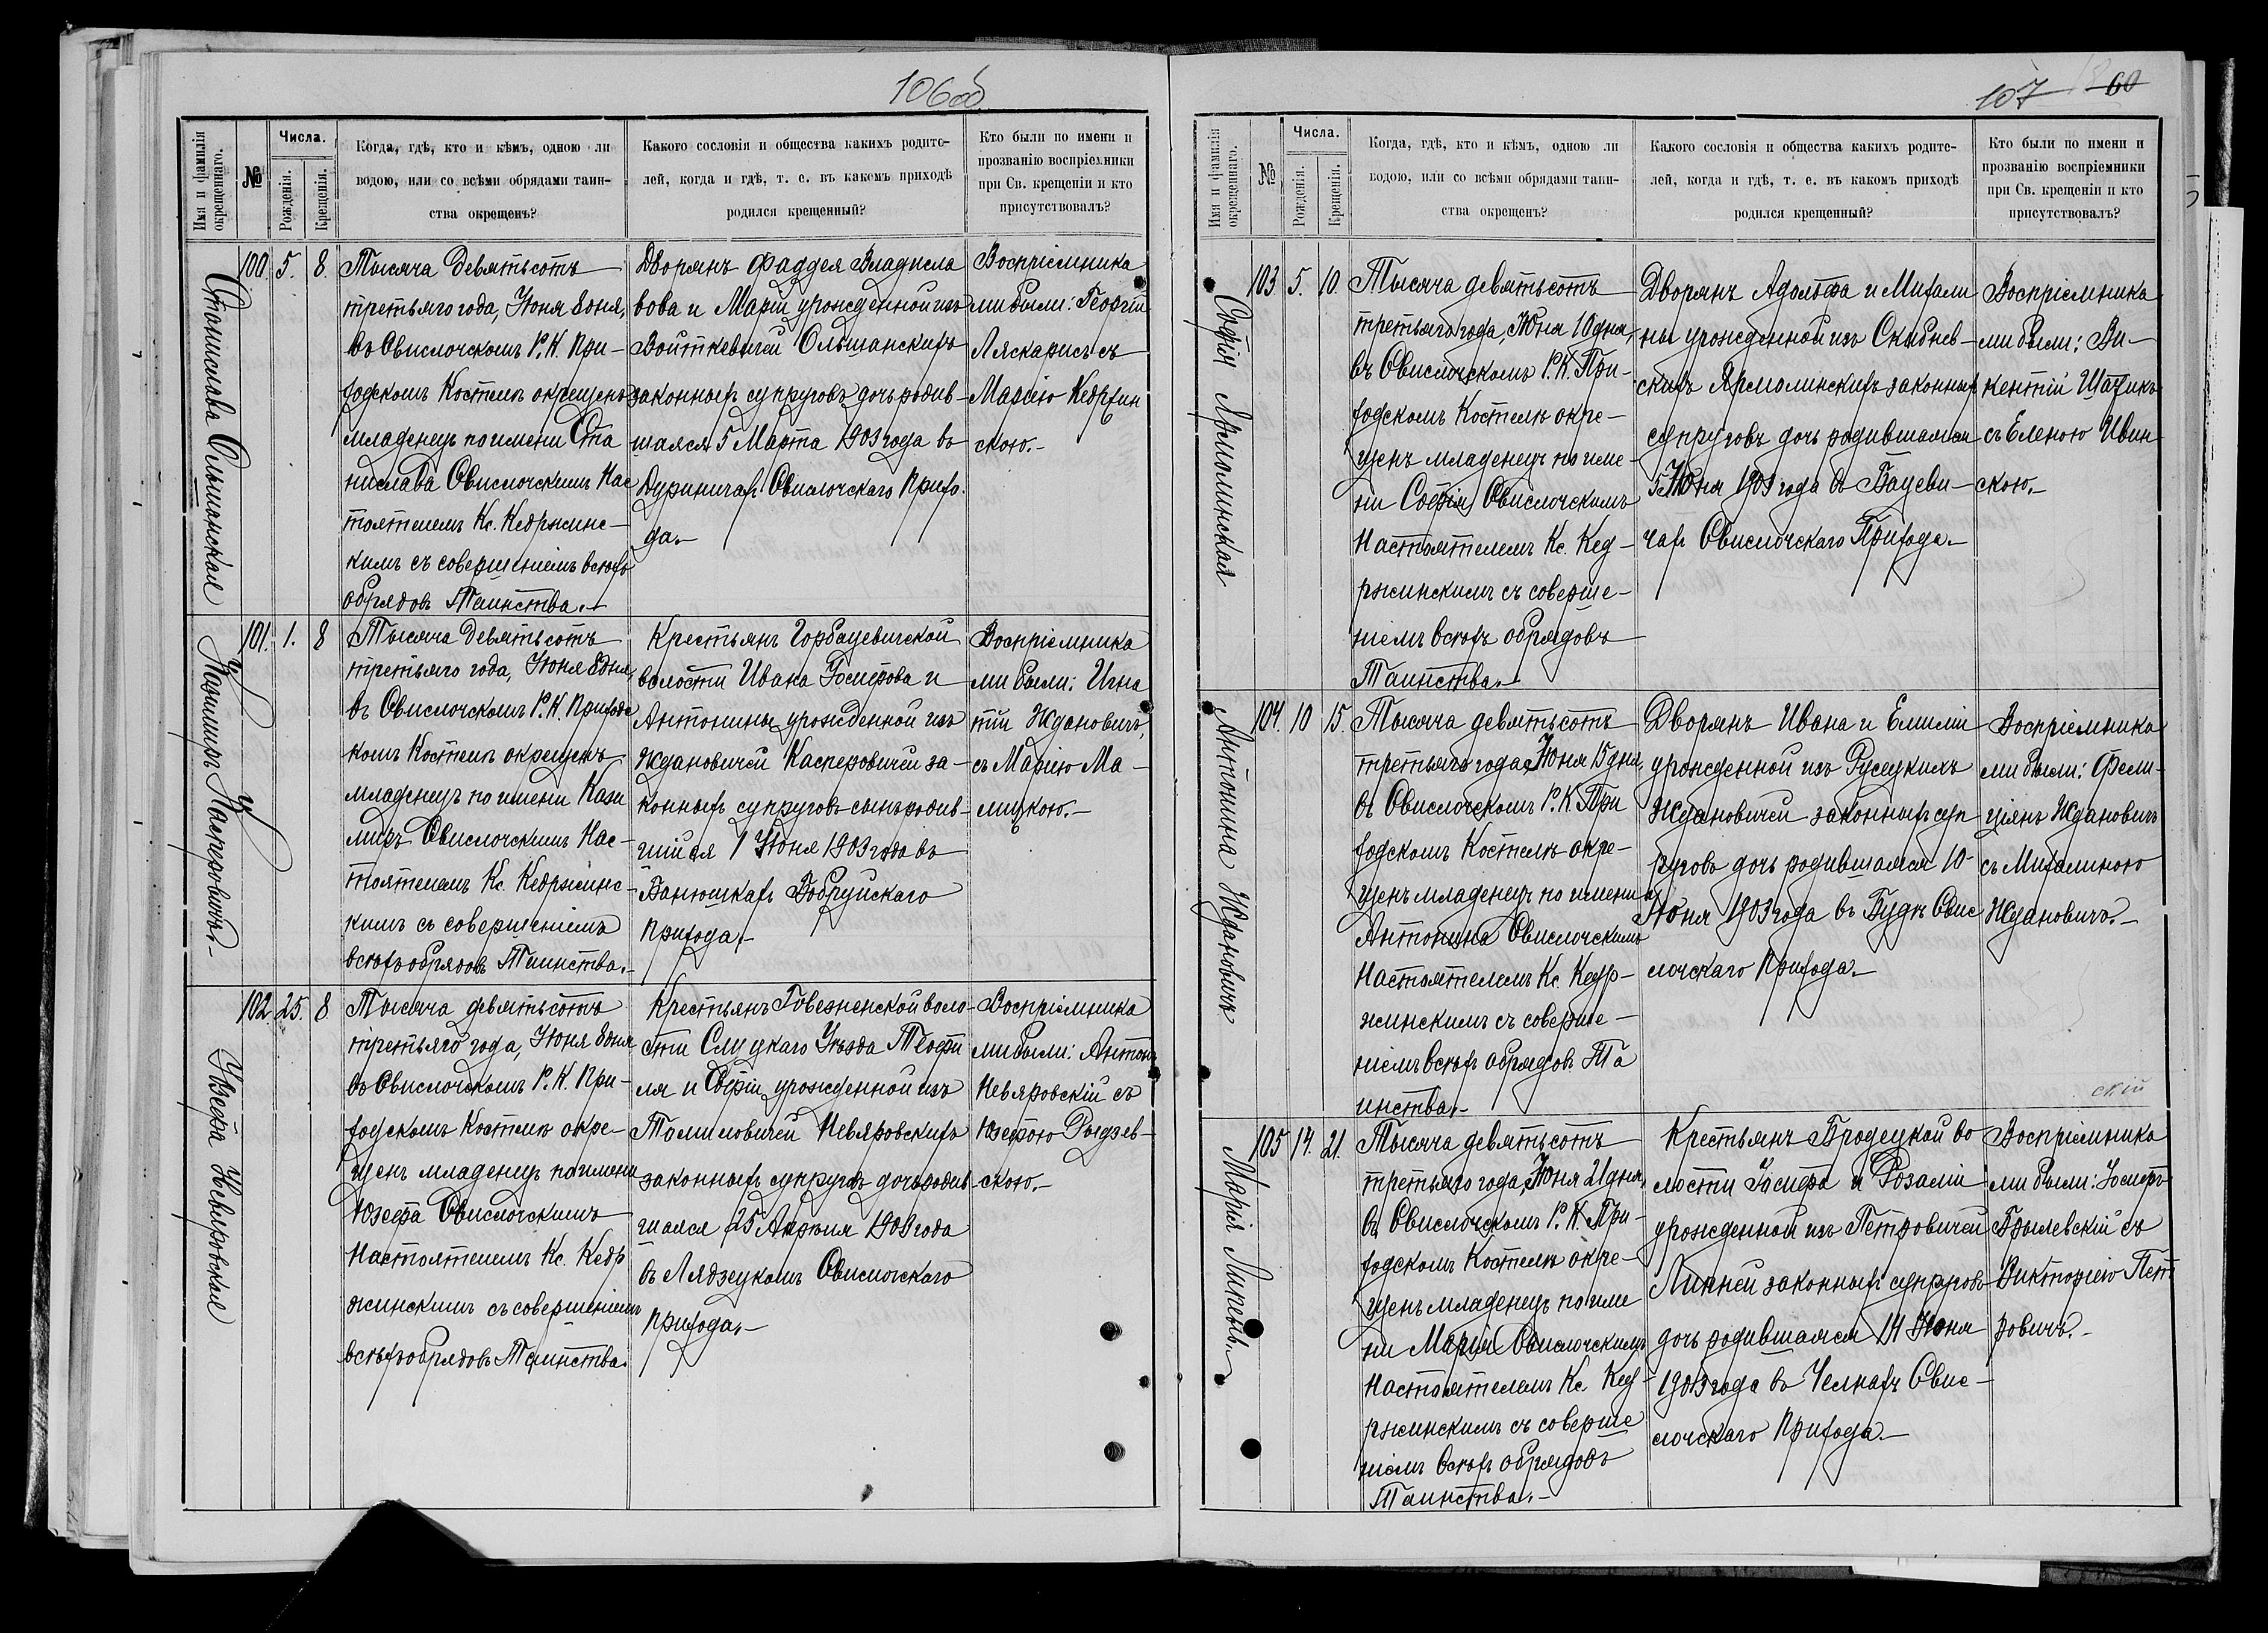 106об
Имя и фамилія окрещеннаго.
№
Числа.
Рожденія.
Крещенія.
Когда, гдѣ, кто и кѣмъ, одною ли
водою, или со всѣми обрядами таин-
ства окрещенъ?
Какого сословія и общества какихъ родите-
лей, когда и гдѣ, т. е. въ какомъ приходѣ
родился крещенный?
Кто были по имени и
прозванію воспріемники
при Св. крещеніи и кто
присутствовалъ?
Станислава Ольшанская
100. 5. 8.
Тысяча девятьсотъ
третьяго года, Іюня 8 дня,
въ Свислочскомъ Р. К. При-
ходскомъ Костелѣ окрещенъ
младенецъ по имени Ста
нислава Свислочскимъ Нас
тоятелемъ Кс. Кедржинс-
кимъ съ совершеніемъ всѣхъ
обрядовъ Таинства.-
Дворянъ Фаддея Владисла
вова и Маріи урожденной изъ
Войткевичей Ольшанскихъ
законныхъ супруговъ дочь родив-
шаяся 5 Марта 1903 года въ
Дуриничахъ Свислочскаго Прихо-
да.-
Воспріемника
ми были: Георгій
Ляскарисъ съ
Маріею Кедржин
скою.-
Казимиръ Касперовичъ.-
101. 1. 8
Тысяча девятьсотъ
третьяго года, Іюня 8 дня,
въ Свислочскомъ Р. К. Приходс
комъ Костелѣ окрещенъ
младенецъ по имени Кази
миръ Свислочскимъ Нас-
тоятелемъ Кс. Кедржинс-
кимъ съ совершеніемъ
всѣхъ обрядовъ Таинства.-
Крестьянъ Горбацевичской
волости Ивана Іосифова и
Антонины урожденной изъ
Ждановичей Касперовичей за-
конныхъ супруговъ сынъ родив-
шійся 1 Іюня 1903 года въ
Банюшкахъ Бобруйскаго
прихода.-
Воспріемника
ми были: Игна
тій Ждановичъ,
съ Маріею Ма-
лицкою.-
Юзефа Невяровская
102. 25. 8
Тысяча девятьсотъ
третьяго года, Іюня 8 дня
въ Свислочскомъ Р. К. При-
ходскомъ Костелѣ окре-
щенъ младенецъ по имени
Юзефа Свислочскимъ
Настоятелемъ Кс. Кедр
жинскимъ съ совершеніемъ
всѣхъ обрядовъ Таинства.
Крестьянъ Говезненской воло-
сти Слуцкаго Уѣзда Теофи
ля и Софіи урожденной изъ
Томиловичей Невяровскихъ
законныхъ супруговъ дочь родив-
шаяся 25 Апрѣля 1903 года
въ Лядзецкомъ Свислочскаго
прихода.-
Воспріемника
ми были: Антонъ
Невяровскій съ
Юзефою Рыдзев-
скою.-
107 60
Имя и фамилія окрещеннаго.
№
Числа.
Рожденія.
Крещенія.
Когда, гдѣ, кто и кѣмъ, одною ли
водою, или со всѣми обрядами таин-
ства окрещенъ?
Какого сословія и общества какихъ родите-
лей, когда и гдѣ, т. е. въ какомъ приходѣ
родился крещенный?
Кто были по имени и
прозванію воспріемники
при Св. крещеніи и кто
присутствовалъ?
Софія Ярмолинская
103. 5. 10.
Тысяча девятьсотъ
третьяго года, Июня 10 дня,
въ Свислочскомъ Р. К. При-
ходскомъ Костелѣ окре-
щенъ младенецъ по име-
ни Софія Свислочскимъ
Настоятелемъ Кс. Кед-
ржинскимъ съ соверше-
ніемъ всѣхъ обрядовъ
Таинства.-
Дворянъ Адольфа и Михали
ны урожденной изъ Скибнев-
скихъ Ярмолинскихъ законныхъ
супруговъ дочь родившаяся
5 Июня 1903 года въ Бацеви-
чахъ Свислочскаго Прихода.-
Воспріемника
ми были: Ви-
кентій Шацикъ
съ Еленою Ивин-
скою.-
Антонина Ждановичъ
104. 10 15.
Тысяча девятьсотъ
третьяго года, Июня 15 дня,
въ Свислочскомъ Р. К. При
ходскомъ Костелѣ окре-
щенъ младенецъ по имени
Антонина Свислочскимъ
Настоятелемъ Кс. Кедр-
жинскимъ съ соверше-
ніемъ всѣхъ обрядовъ Та
инства.-
Дворянъ Ивана и Емиліи
урожденной изъ Русецкихъ
Ждановичей законныхъ суп
руговъ дочь родившаяся 10-
Июня 1903 года въ Будѣ Свис
лочскаго Прихода.-
Воспріемника
ми были: Фели-
ціянъ Ждановичъ
съ Михалиною
Ждановичъ.-
скій
Марія Липень.-
105 14. 21.
Тысяча девятьсотъ
третьяго года, Июня 21 дня,
въ Свислочскомъ Р. К. При-
ходскомъ Костелѣ окре-
щенъ младенецъ по име
ни Марія Свислочскимъ
Настоятелемъ Кс. Кед-
ржинскимъ съ соверше
ніемъ всѣхъ обрядовъ
Таинства.-
Крестьянъ Бродецкой во
лости Іосифа и Розаліи
урожденной изъ Петровичей
Липней законныхъ супруговъ
дочь родившаяся 14 Июня
1903 года въ Челнахъ Свис-
лочскаго Прихода.-
Воспріемника
ми были: Іосифъ
Брылевскій съ
Викторіею Пет-
ровичъ.-